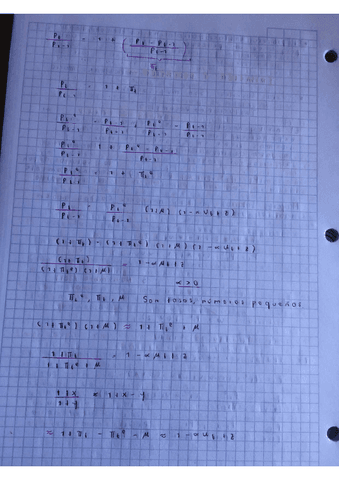 Pt / Pt-1 = 1 + (Pt - Pt-1 / Pt-1)
πt
Pt / Pt-1 = 1 + πt
Pt^e / Pt-1 = Pt-1 / Pt-1 + Pt^e / Pt-1 - Pt-1 / Pt-1
Pt^e / Pt-1 = 1 + Pt^e - Pt-1 / Pt-1
Pt^e / Pt-1 = 1 + πt^e
Pt / Pt-1 = Pt^e / Pt-1 (1+μ) (1-αut+z)
(1+πt) = (1+πt^e) (1+μ) (1-αut+z)
(1+πt) / (1+πt^e) (1+μ) = 1-αut+z
α>0
πt^e, πt, μ Son tasas, números pequeños
(1+πt^e) (1+μ) ≈ 1+πt^e + μ
1+πt / 1+πt^e+μ = 1-αut+z
1+x / 1+y ≈ 1+x-y
= 1+πt - πt^e - μ ≈ 1-αut+z